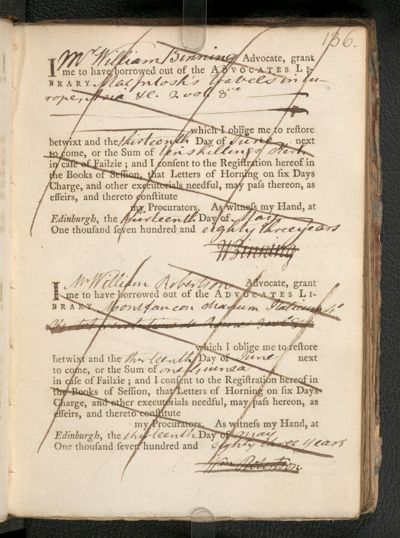 156.
I Mr William Binning Advocate, grant
me to have borroyed out of the ADVOCATES LI-
BRARY MacIntosh's travels in Eu-
rope, Asia &c. 2 vols 8vo
which I oblige me to restore
betwixt and the thirteenth Day of June next
to come, or the Sum of ten shillings Sterl.
in case of Failzie; and I consent to the Registration hereof in
the Books of Session, that Letters of Horning on six Days
Charge, and other executorials needful, may pass thereon, as
effeirs, and thereto constitute
my Procurators. As witness my Hand, at
Edinburgh, the thirteenth Day of May
One thousand seven hundred and eighty three years
WBinning
I Mr William Robertson Advocate, grant
me to have borrowed out of the ADVOCATES LI-
BRARY Montfaucon diarium Italicum 4o
which I oblige me to restore
betwixt and the thirteenth Day of June next
to come, or the Sum of one guinea
in case of Failzie; and I consent to the Registration hereof in
the Books of Session, that Letters of Horning on six Days
Charge, and other executorials needful, may pass hereon, as
effeirs, and thereto constitute
my Procurators. As witness my Hand, at
Edinburgh, the thirteenth Day of May
One thousand seven hundred and eighty three years
Wm Robertson